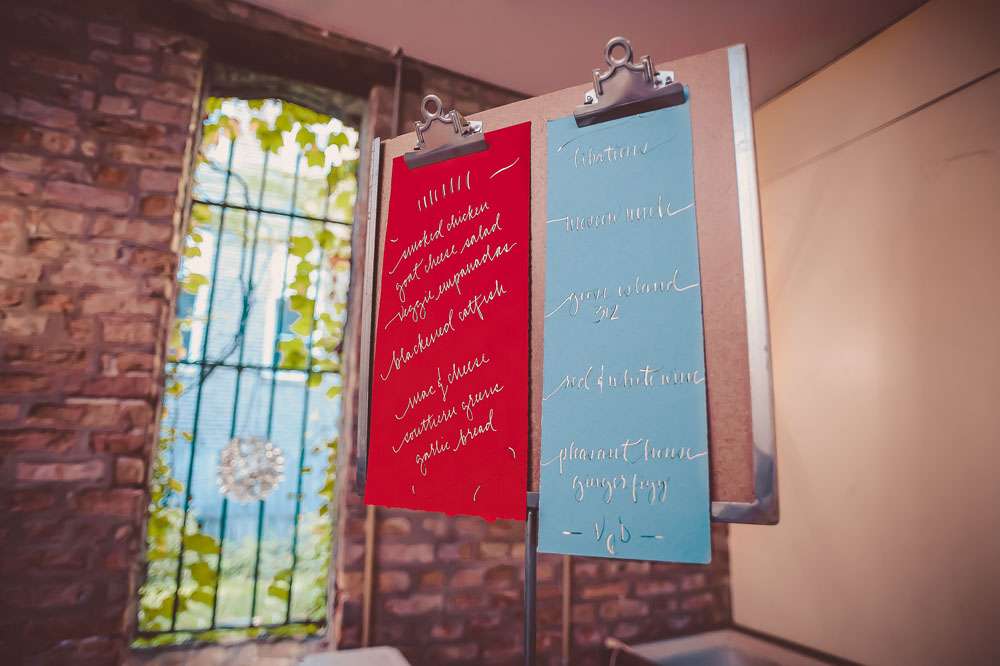 smoked chicken
goat cheese salad
veggie empanadas
blackened catfish
mac & cheese
southern greens
garlic bread
libations
moscow mule
goose island
312
red & white wine
pleasant house
ginger fizzy
V & D